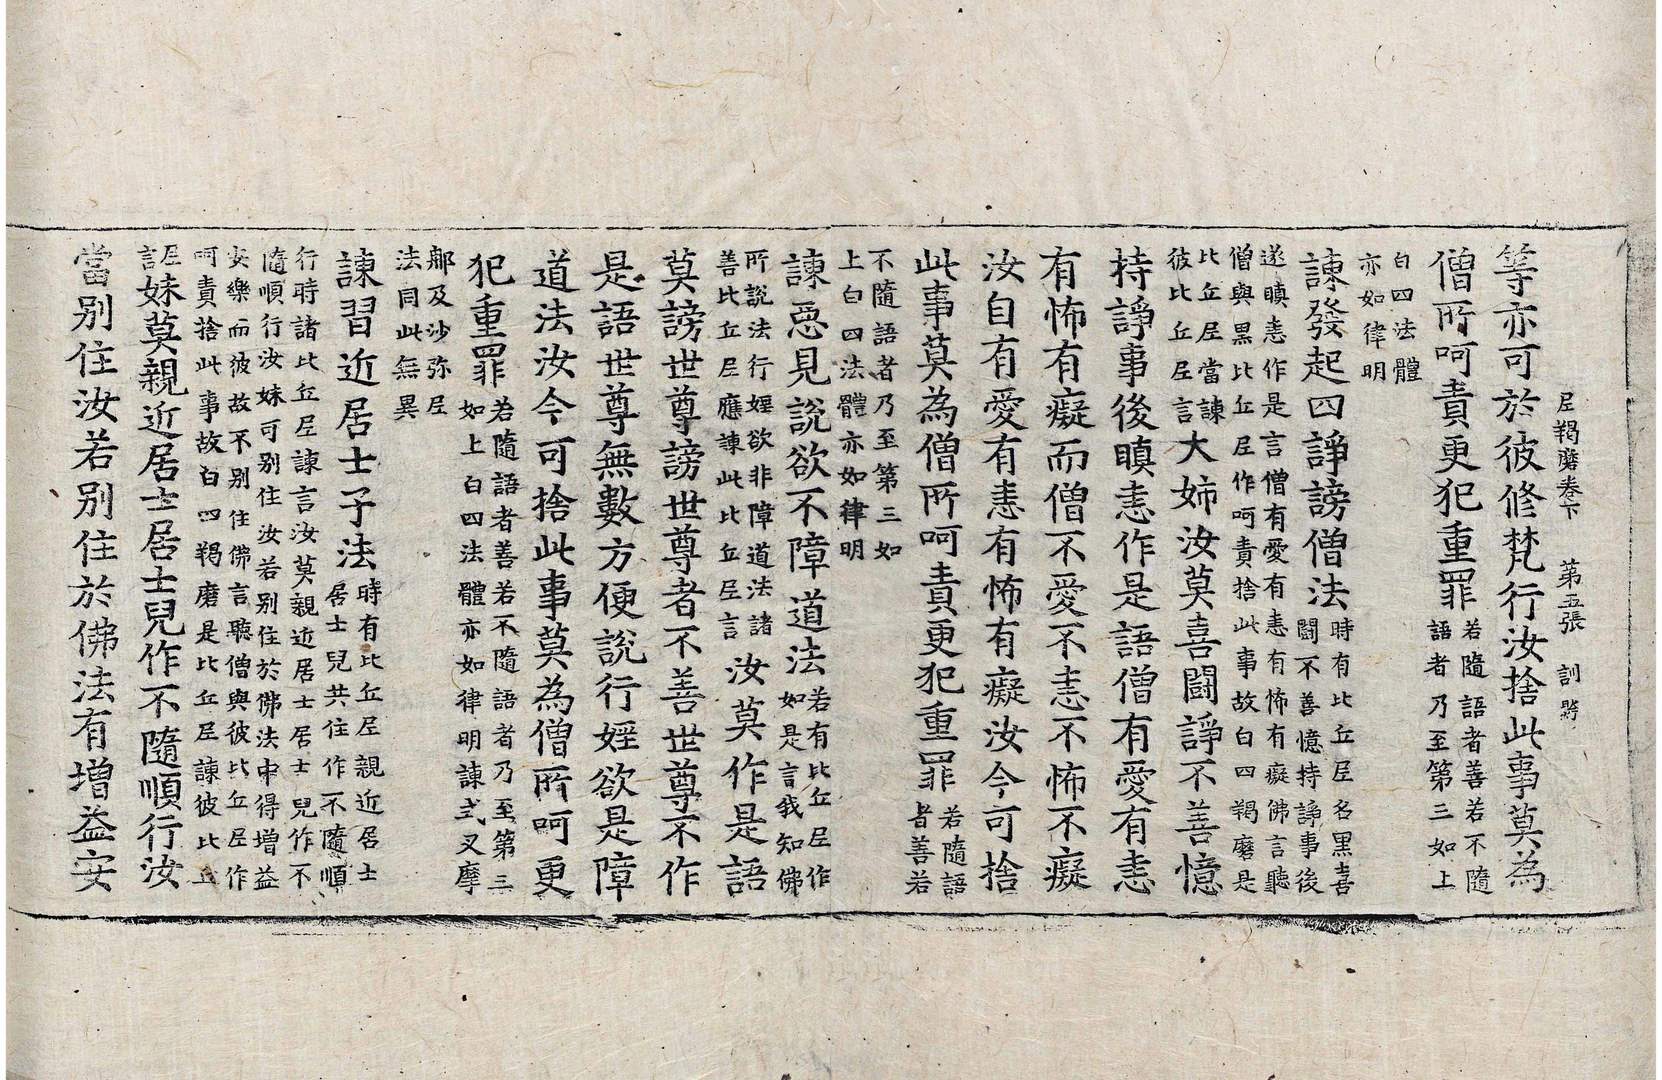 尼羯磨卷下 第五張 訓
等亦可於彼修梵行汝捨此事莫為
僧所呵責更犯重罪若隨語者善若不隨語者乃至第三如上
白四法體亦如律明
諫發起四諍謗僧法時有比丘尼名黑喜鬪不善憶持諍事後
遂瞋恚作是言僧有愛有恚有怖有癡佛言聽僧與黑比丘尼作呵責捨此事故白四羯磨是
比丘尼當諫彼比丘尼言大姉汝莫喜鬪諍不善憶
持諍事後瞋恚作是語僧有愛有恚
有怖有癡而僧不愛不恚不怖不癡
汝自有愛有恚有怖有癡汝今可捨
此事莫為僧所呵責更犯重罪若隨語者善若
不隨語者乃至第三如上白四法體亦如律明
諫惡見說欲不障道法若有比丘尼作如是言我知佛
所說法行婬欲非障道法諸善比丘尼應諫此比丘尼言汝莫作是語
莫謗世尊謗世尊者不善世尊不作
是語世尊無數方便說行婬欲是障
道法汝今可捨此事莫為僧所呵更
犯重罪若隨語者善若不隨語者乃至第三如上白四法體亦如律明諫式叉摩
郍及沙弥尼法同此無異
諫習近居士子法時有比丘尼親近居士居士兒共住作不隨順
行時諸比丘尼諫言汝莫親近居士居士兒作不隨順行汝妹可別住汝若別住於佛法中得增益
安樂而彼故不別住佛言聽僧與彼比丘尼作呵責捨此事故白四羯磨是比丘尼諫彼比丘
尼言妹莫親近居士居士兒作不隨順行汝
當別住汝若別住於佛法有增益安